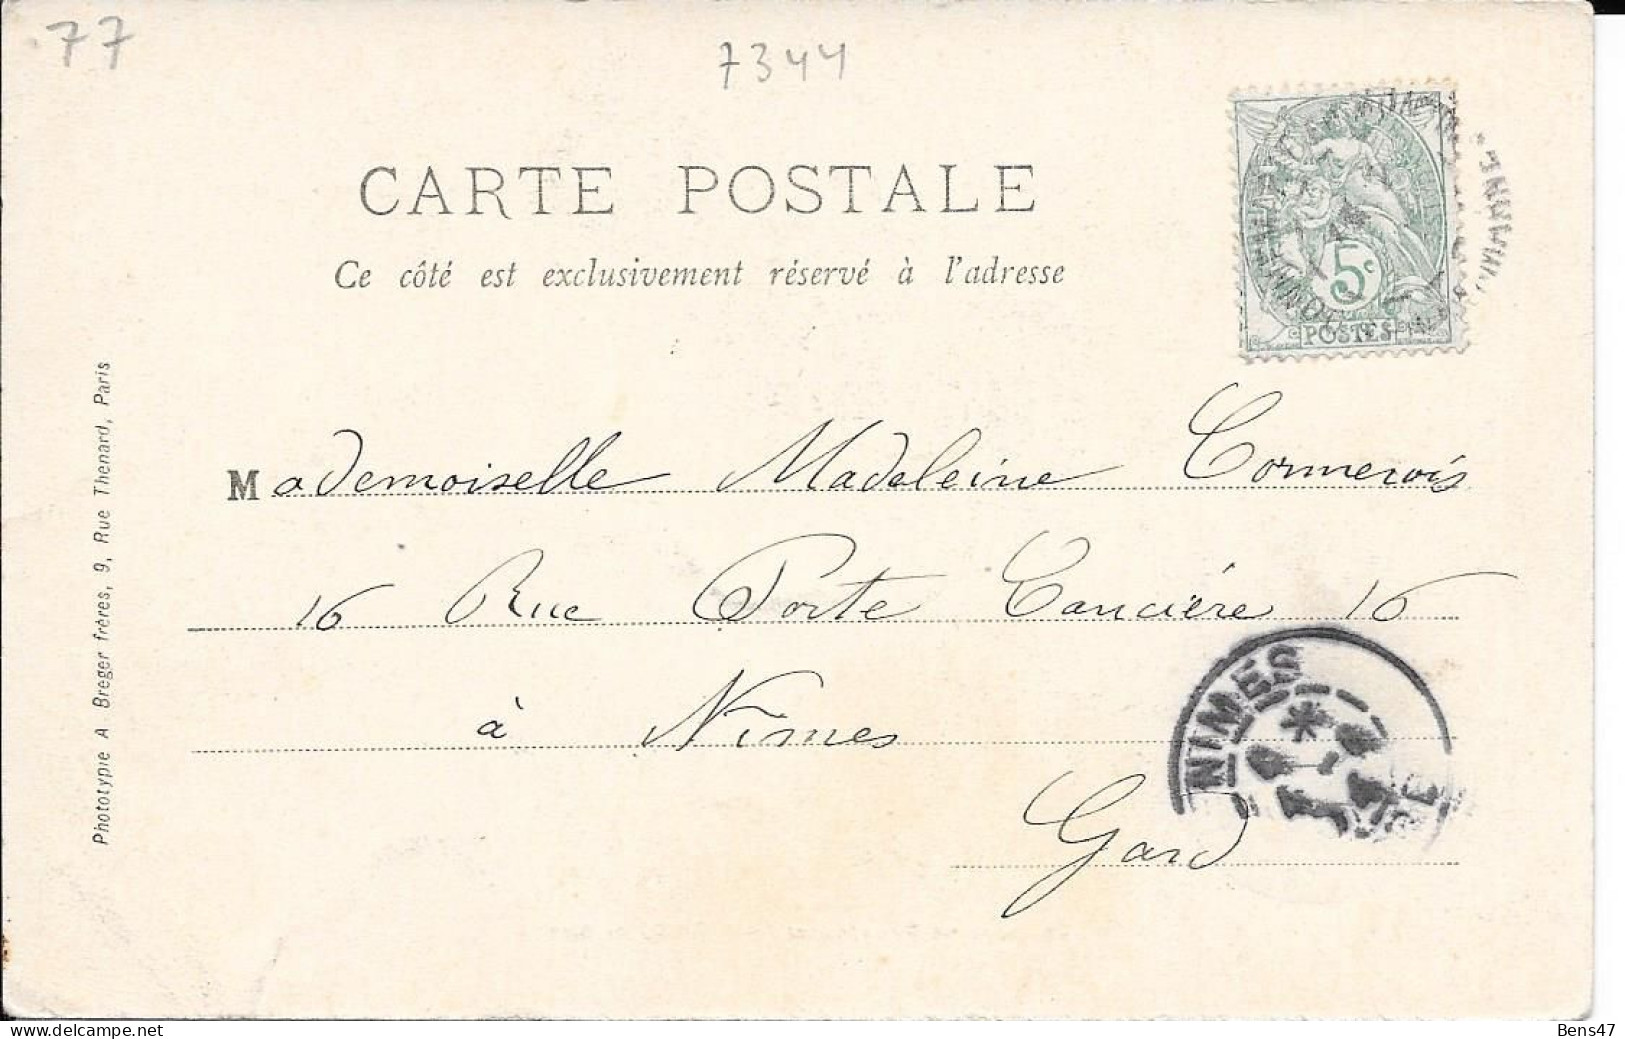 77
7344
CARTE POSTALE
Ce côté est exclusivement réservé à l'adresse
5c
POSTES
Mademoiselle Madeleine Cormerois
16 Rue Porte Cancière 16
à Nimes
Gard
NIMES
Phototypie A Breger frères, 9, Rue Thenard, Paris
Bens47